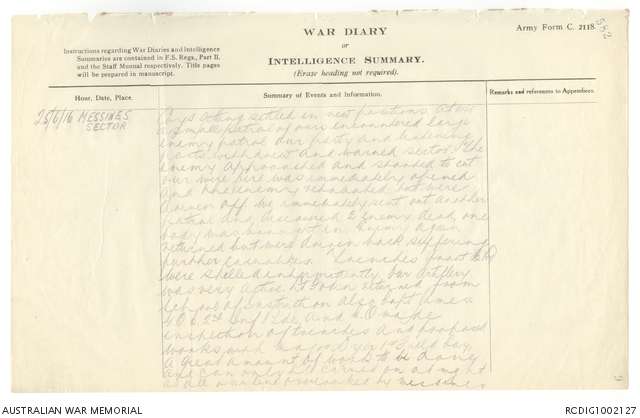 WAR DIARY
or
INTELLIGENCE SUMMARY.
(Erase heading not required).
Army Form C. 2118.
Instructions regarding War Diaries and Intelligence
Summaries are contained in F.S. Regs., Part II.
and the Staff Manual respectively. Title pages
will be prepared in manuscript.
Hour, Date, Place.
Summary of Events and Information.
Remarks and references to Appendices.
25/6/16 MESSINES
SECTOR
settled in new positions
a small patrol of ours encountered large
enemy patrol our party and listening
posts withdrew and warned sector. The
enemy approached and started to cut
our wire fire was immediately opened
and the enemy retaliated but were
driven off. We immediately sent out another
patrol and 2 enemy dead, one
body was brought in. Enemy again
returned but were driven back suffering
further casualties. Trenches
were shelled intermittently. Our artillery
was very active. returned from
school of instruction also Capt
and C.O. made
inspection of trenches and proposed
works with Major
a great amount of work to be done
and can only be carried on at night
as all our line overlooked by Messines
AUSTRALIAN WAR MEMORIAL
RCDIG1002127